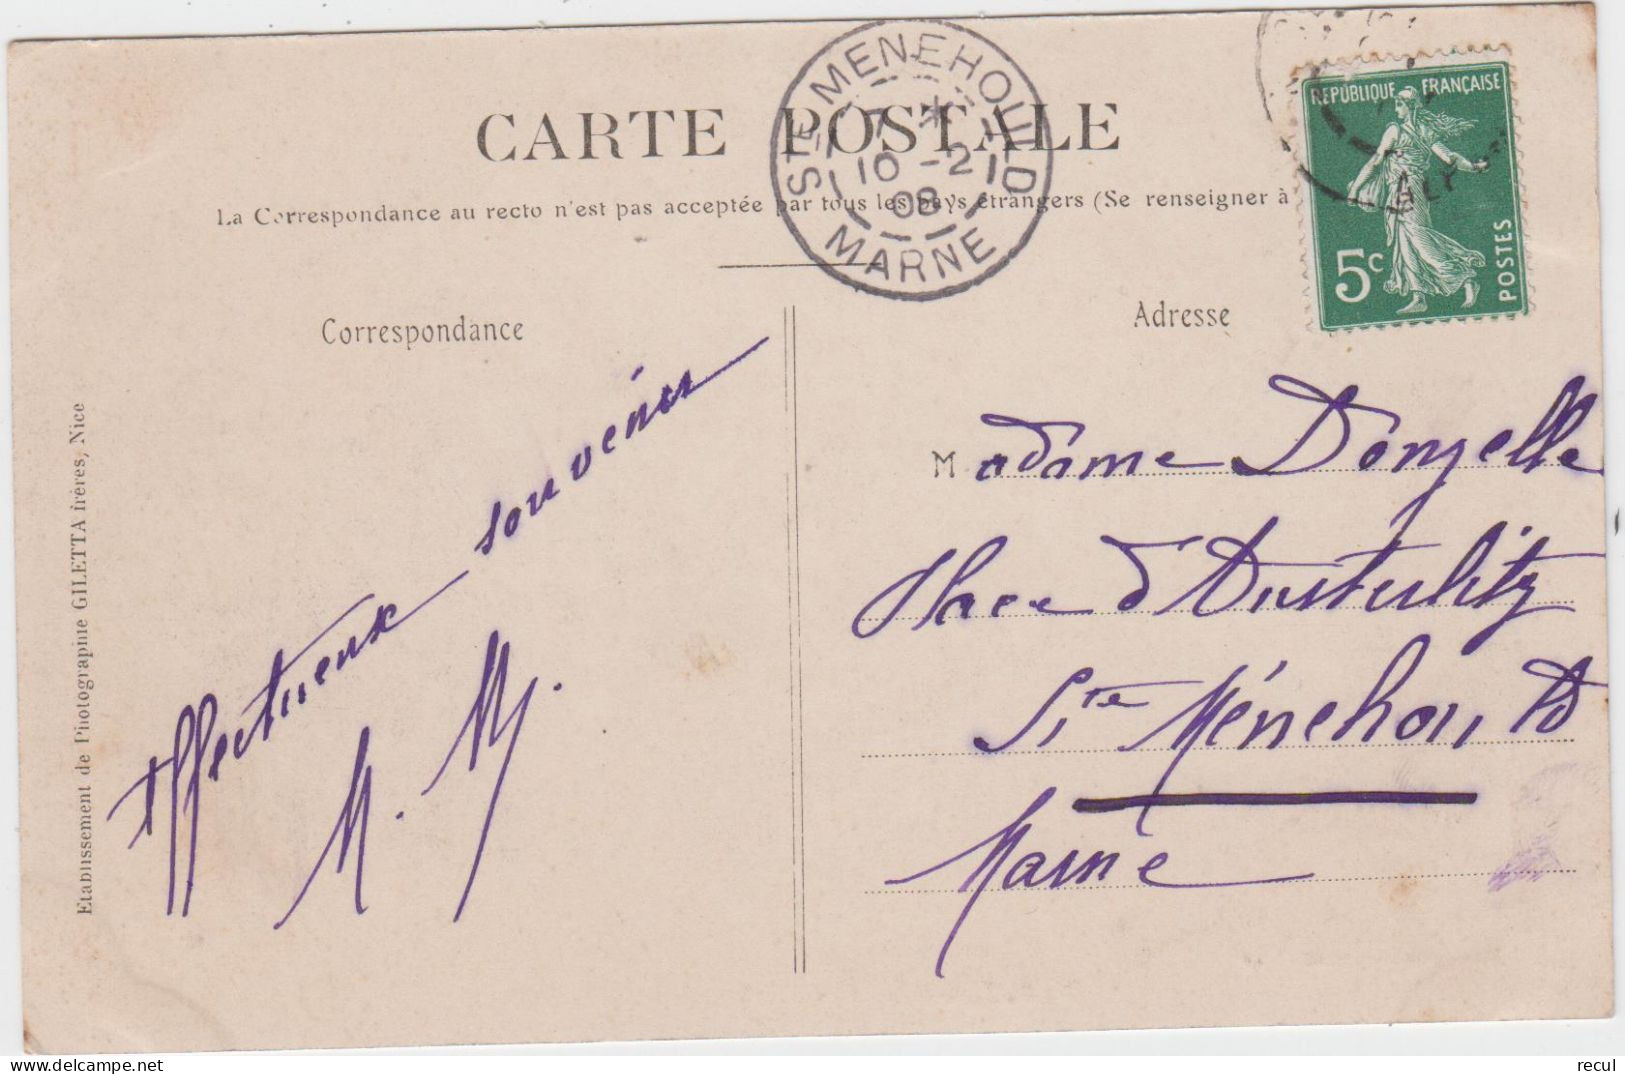 CARTE POSTALE
La Correspondance au recto n'est pas acceptée par tous les pays étrangers (Se renseigner à
STE MENEHOULD
7 *
10 - 2
08
MARNE
RÉPUBLIQUE FRANÇAISE
5c
POSTES
ALP
Correspondance
Affectueux souvenir
M. M.
Etablissement de Photographie GILETTA frères, Nice
Adresse
Madame Donzelle
Place d'Austerlitz
Ste Ménehould
Marne
recul